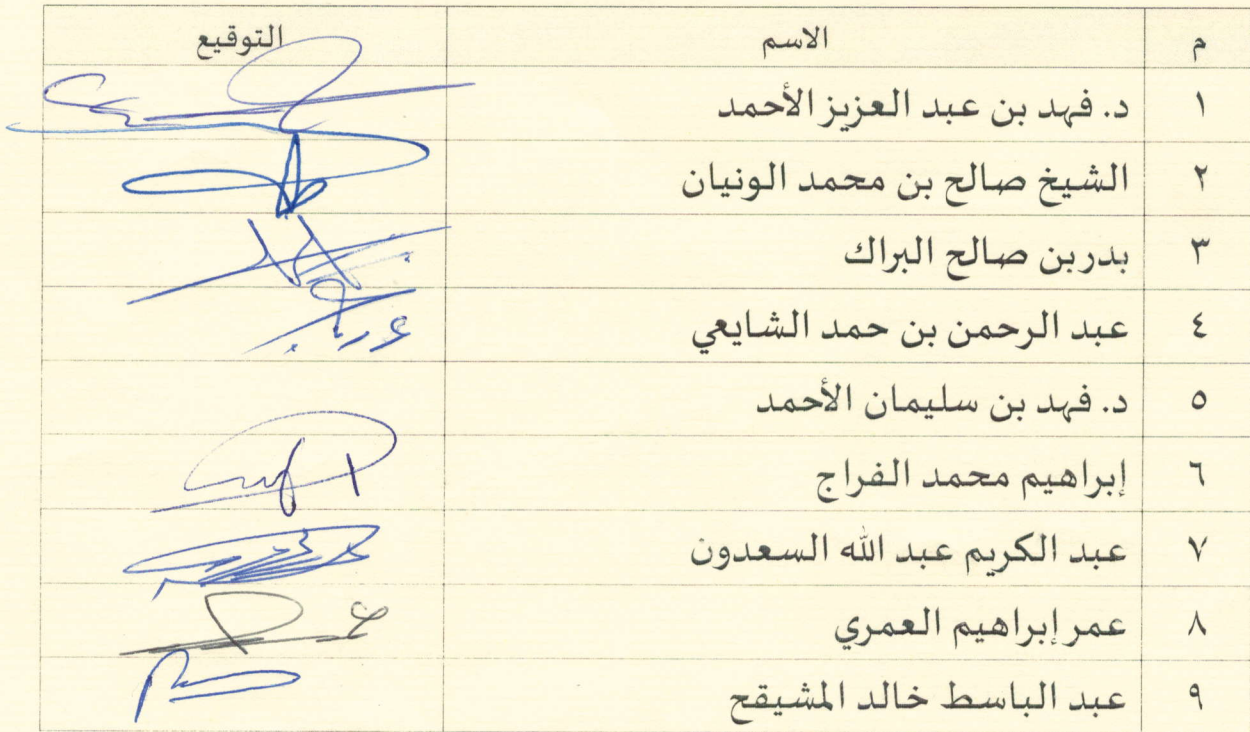 م الاسم التوقيع
١ د. فهد بن عبد العزيز الأحمد
٢ الشيخ صالح بن محمد الونيان
٣ بدر بن صالح البراك
٤ عبد الرحمن بن حمد الشايعي
٥ د. فهد بن سليمان الأحمد
٦ إبراهيم محمد الفراج
٧ عبد الكريم عبد الله السعدون
٨ عمر إبراهيم العمري
٩ عبد الباسط خالد المشيقح